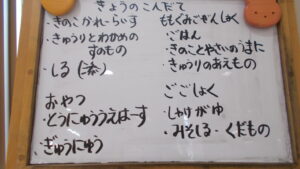 きょうのこんだて
・きのこかれーらいす
・きゅうりとわかめの
すのもの
・しる
おやつ
・とうにゅううえはーす
・ぎゅうにゅう
ももぐみござんしょく
・ごはん
・きのことやさいのうまに
・きゅうりのあえもの
ごごしょく
・しゃけがゆ
・みそしる・くだもの